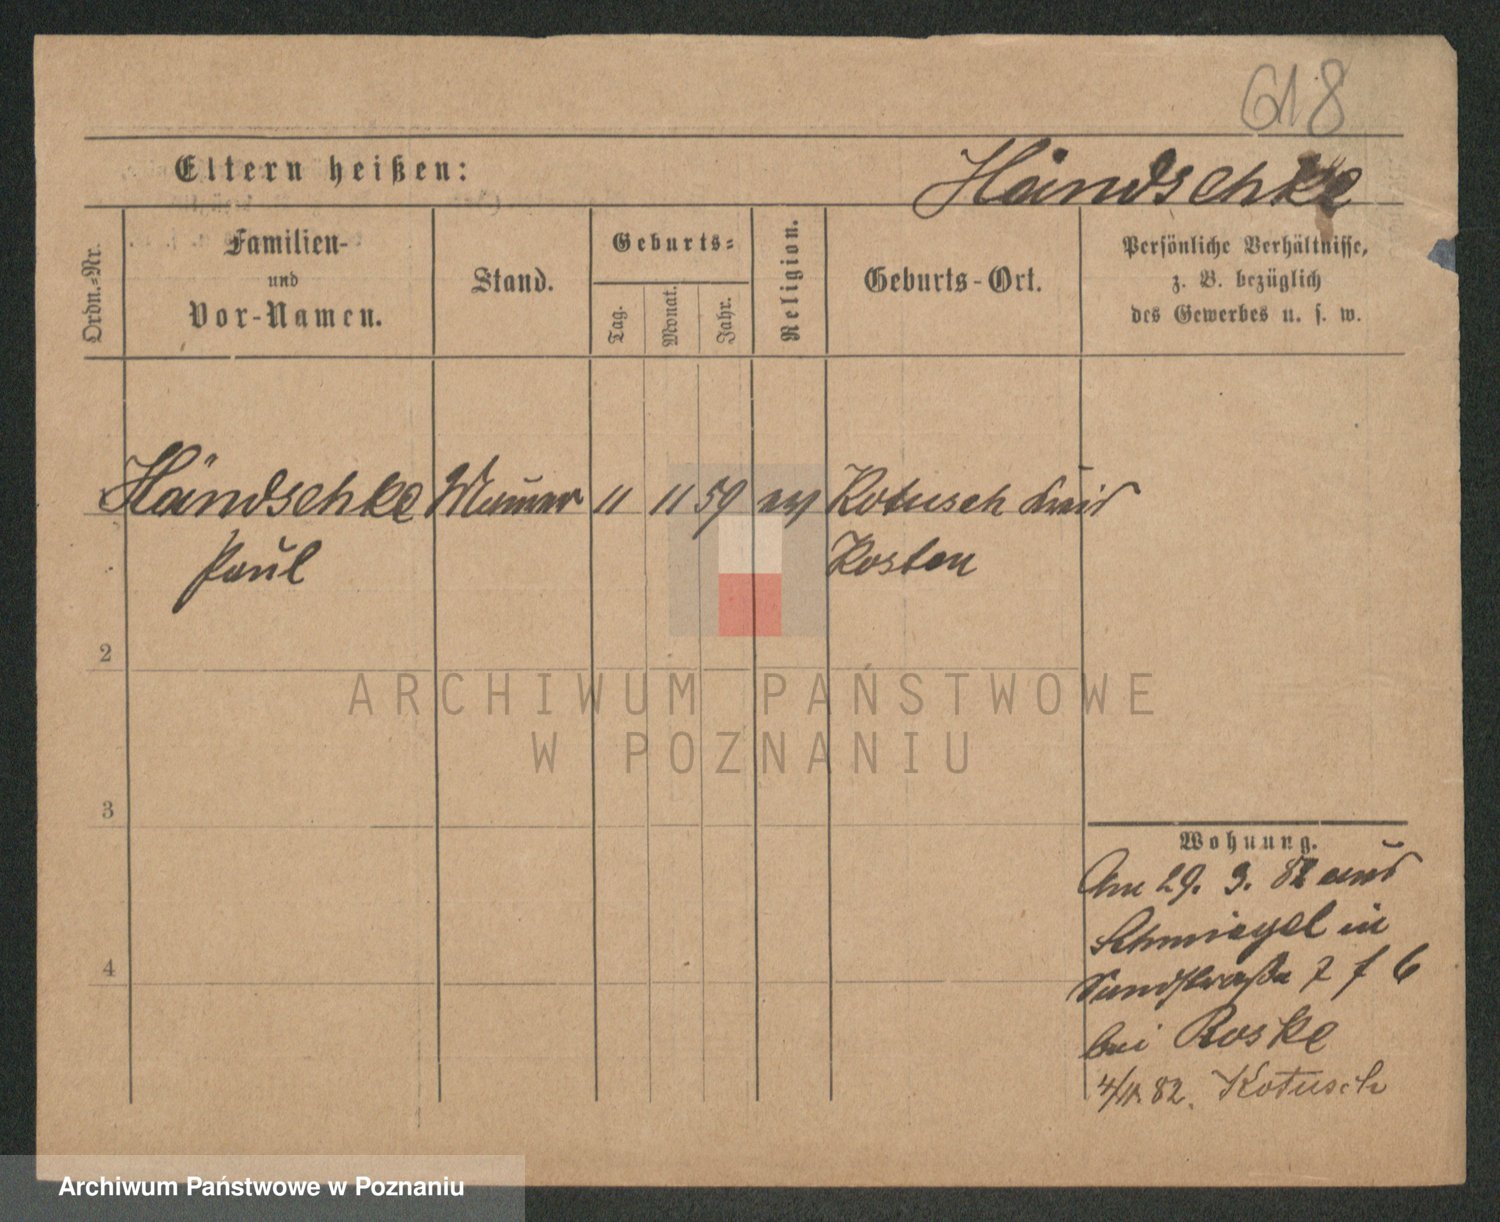 618
Eltern heißen:
Händschke
Ordn.-Nr.
Familien-
und
Vor-Namen.
Stand.
Geburts-
Tag.
Monat.
Jahr.
Religion.
Geburts-Ort.
Persönliche Verhältnisse,
z. B. bezüglich
des Gewerbes u. s. w.
Händschke Maurer 11 11 59 ev Kotusch Kreis
Paul Kosten
2
3
4
Wohnung.
Am 29. 3. 82 aus
Schmiegel in
7 6
bei Roske
82. Kotusch
ARCHIWUM PAŃSTWOWE
W POZNANIU
Archiwum Państwowe w Poznaniu